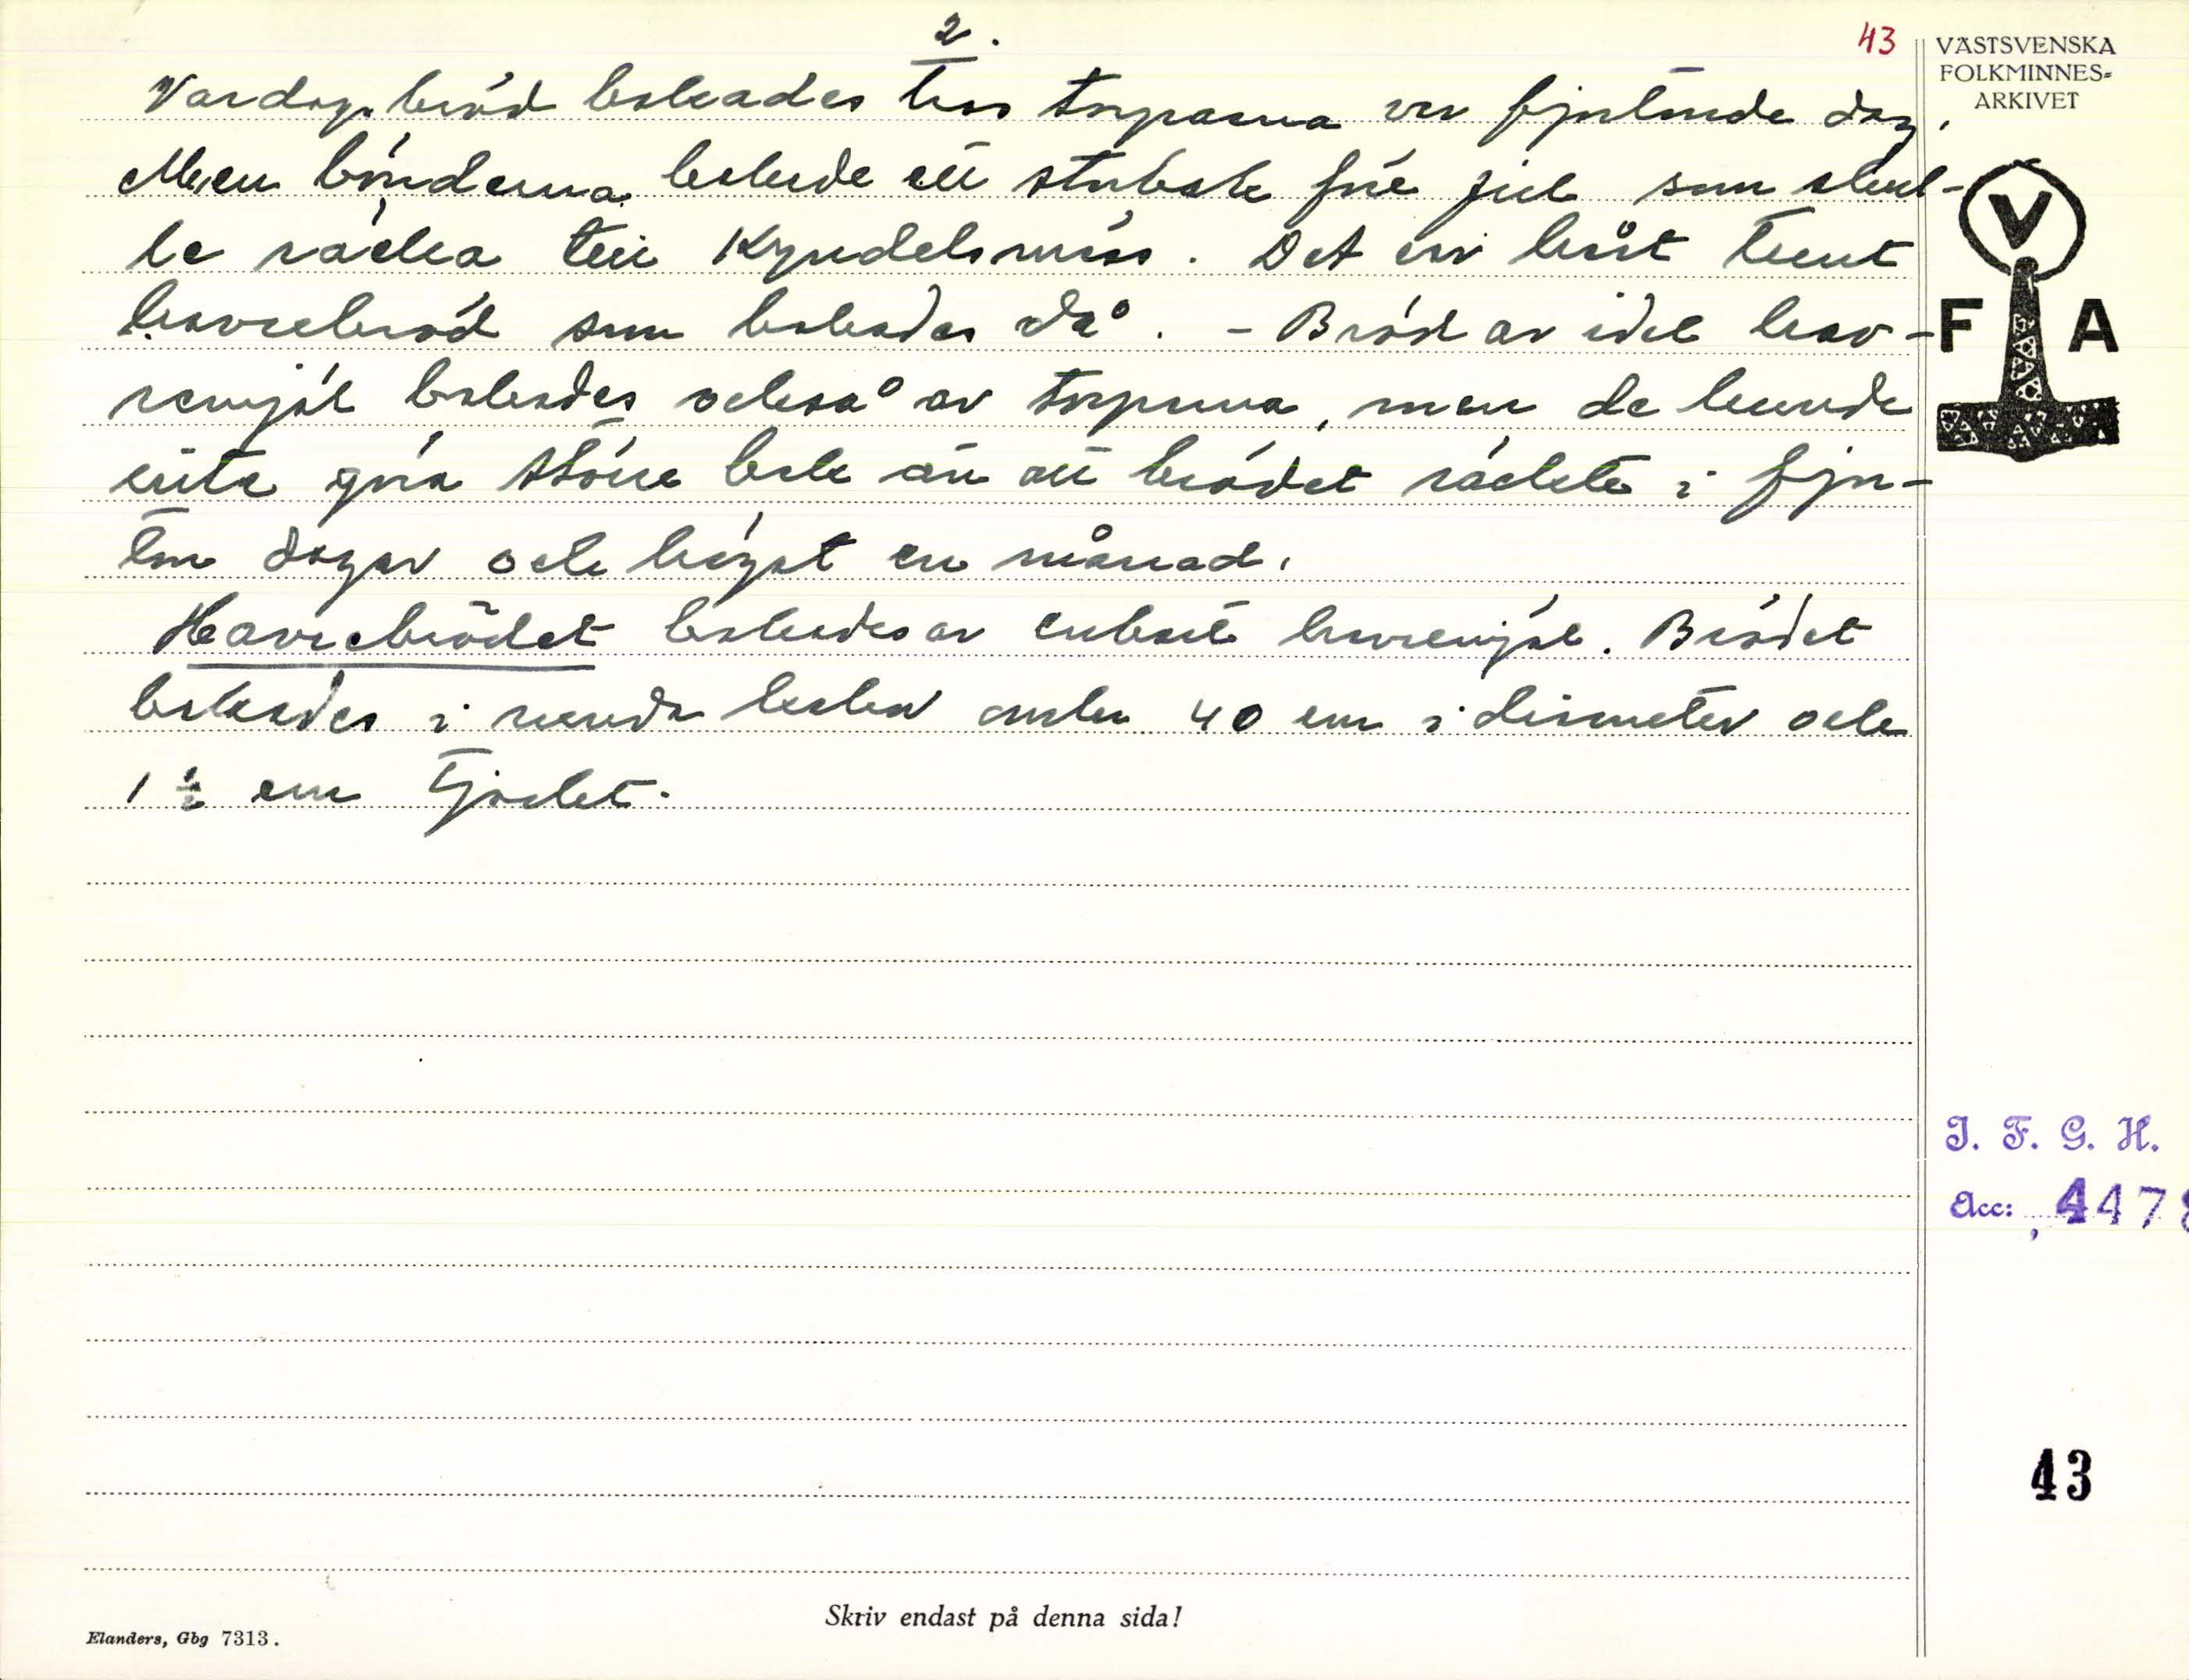 2.
43
VÄSTSVENSKA
FOLKMINNES=
ARKIVET
Vardagsbröd bakades hos torparna var fjortonde dag.
Men bönderna bakade ett storbak före jul som skul-
le räcka till Kyndelsmäss. Det var bärst tunt
havrebröd som bakades då. - Bröd av idel hav-
remjöl bakades också av torparna, men de kunde
inte göra större bak än att brödet räckte i fjor-
ton dagar och högst en månad.
Havrebrödet bakades av enbart havremjöl. Brödet
bakades i runda kakor omkr 40 cm i diameter och
1 ½ cm tjocket.
V
F A
I. F. G. H.
Acc: 4478
43
Skriv endast på denna sida!
Elanders, Gbg 7313.